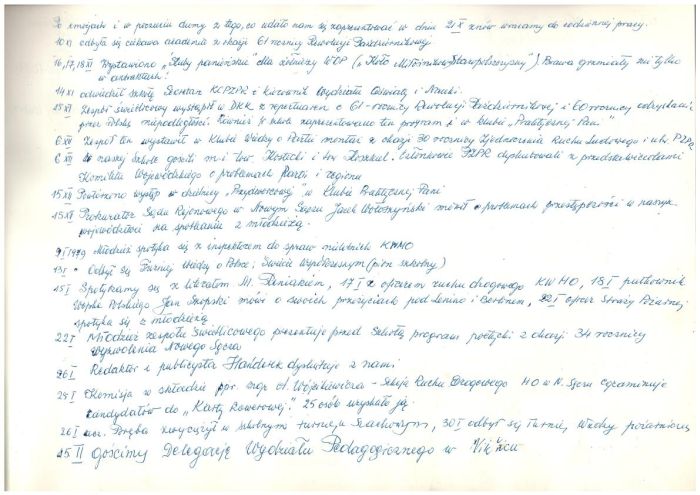 Po emocjach i w poczuciu dumy z tego, co udało nam się zaprezentować w dniu 21 X znów wracamy do codziennej pracy.
10 XI odbyła się ciekawa akademia z okazji 61 rocznicy Rewolucji Październikowej.
16, 17, 18 XI Wystawiono "Śluby panieńskie" dla żołnierzy WOP ("Koło Miłośników Staropolszczyzny") Brawa grzmiały nie tylko
w antraktach!
14 XI odwiedził szkołę Sekretarz KC PZPR i kierownik Wydziału Oświaty i Nauki.
15 XI Zespół świetlicowy wystąpił w DKK z repertuarem o 61-rocznicy Rewolucji Październikowej i 60 rocznicy odzyskania
przez Polskę niepodległości. Również w szkole zaprezentowano ten program i w klubie "Praktycznej Pani"
6 XII Zespół ten wystawił w Klubie Wiedzy o Partii montaż z okazji 30 rocznicy Zjednoczenia Ruchu Ludowego i utw. PZPR
6 XII w naszej Szkole gościli m.i tow. Kostecki i tow. Członkowie PZPR dyskutowali z przedstawicielami
Komitetu Wojewódzkiego o problemach Partii i regionu
15 XII Powtórzono występ w dzielnicy "Przydworcowej" w Klubie Praktycznej Pani
15 XII Prokurator Sądu Rejonowego w Nowym Sączu Jacek Wołoszyński mówił o problemach przestępczości w naszym
województwie na spotkaniu z młodzieżą.
9 I 1979 Młodzież spotyka się z inspektorem do spraw nieletnich KWMO
13 I Odbył się Turniej Wiedzy o Polsce i Świecie Współczesnym (pion szkolny)
15 I Spotykamy się z literatem M. 17 I z oficerem ruchu drogowego KWMO, 18 I pułkownik
Wojska Polskiego Jan mówi o swoich przeżyciach pod Lenino i Berlinem, 22 I oficer Straży Pożarnej
spotyka się z młodzieżą
22 I Młodzież zespołu Świetlicowego prezentuje przed Szkołą program poetycki z okazji 34 rocznicy
wyzwolenia Nowego Sącza
26 I Redaktor i publicysta dyskutuje z nami
25 I Komisja w składzie ppr. mgr A. Wójtkiewicza - Sekcja Ruchu Drogowego MO w N. Sączu egzaminuje
kandydatów do "Karty rowerowej". 25 osób uzyskało ją.
26 I ucz. Poręba zwyciężył w szkolnym turnieju szachowym, 30 I odbył się Turniej Wiedzy pożarniczej
15 II gościmy Delegację Wydziału Pedagogicznego w